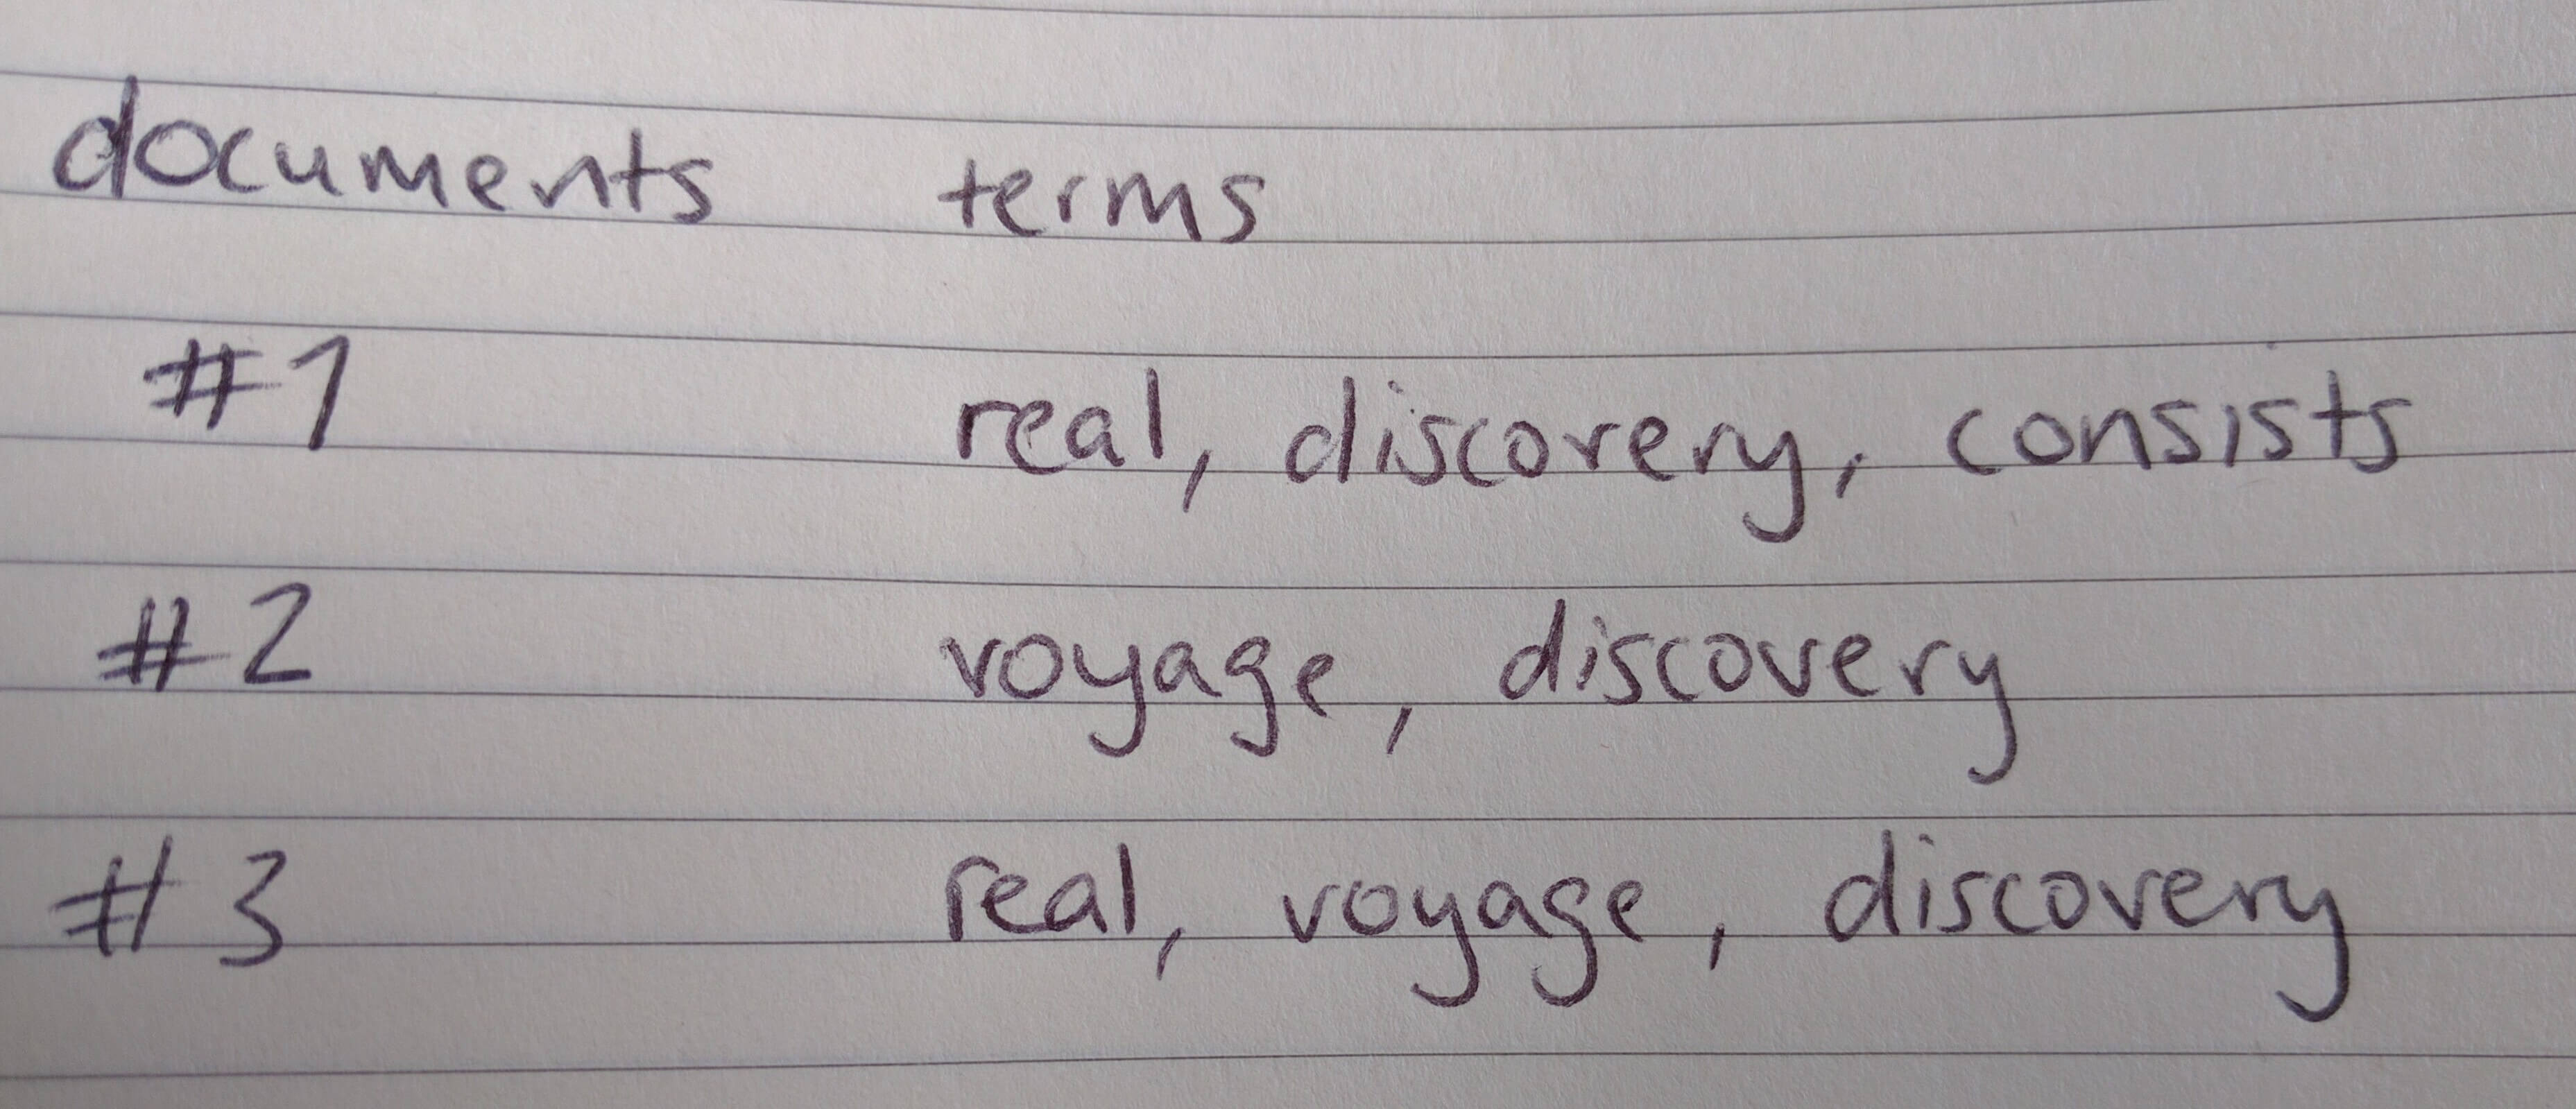 documents terms
#1 real, discovery, consists
#2 voyage, discovery
#3 real, voyage, discovery